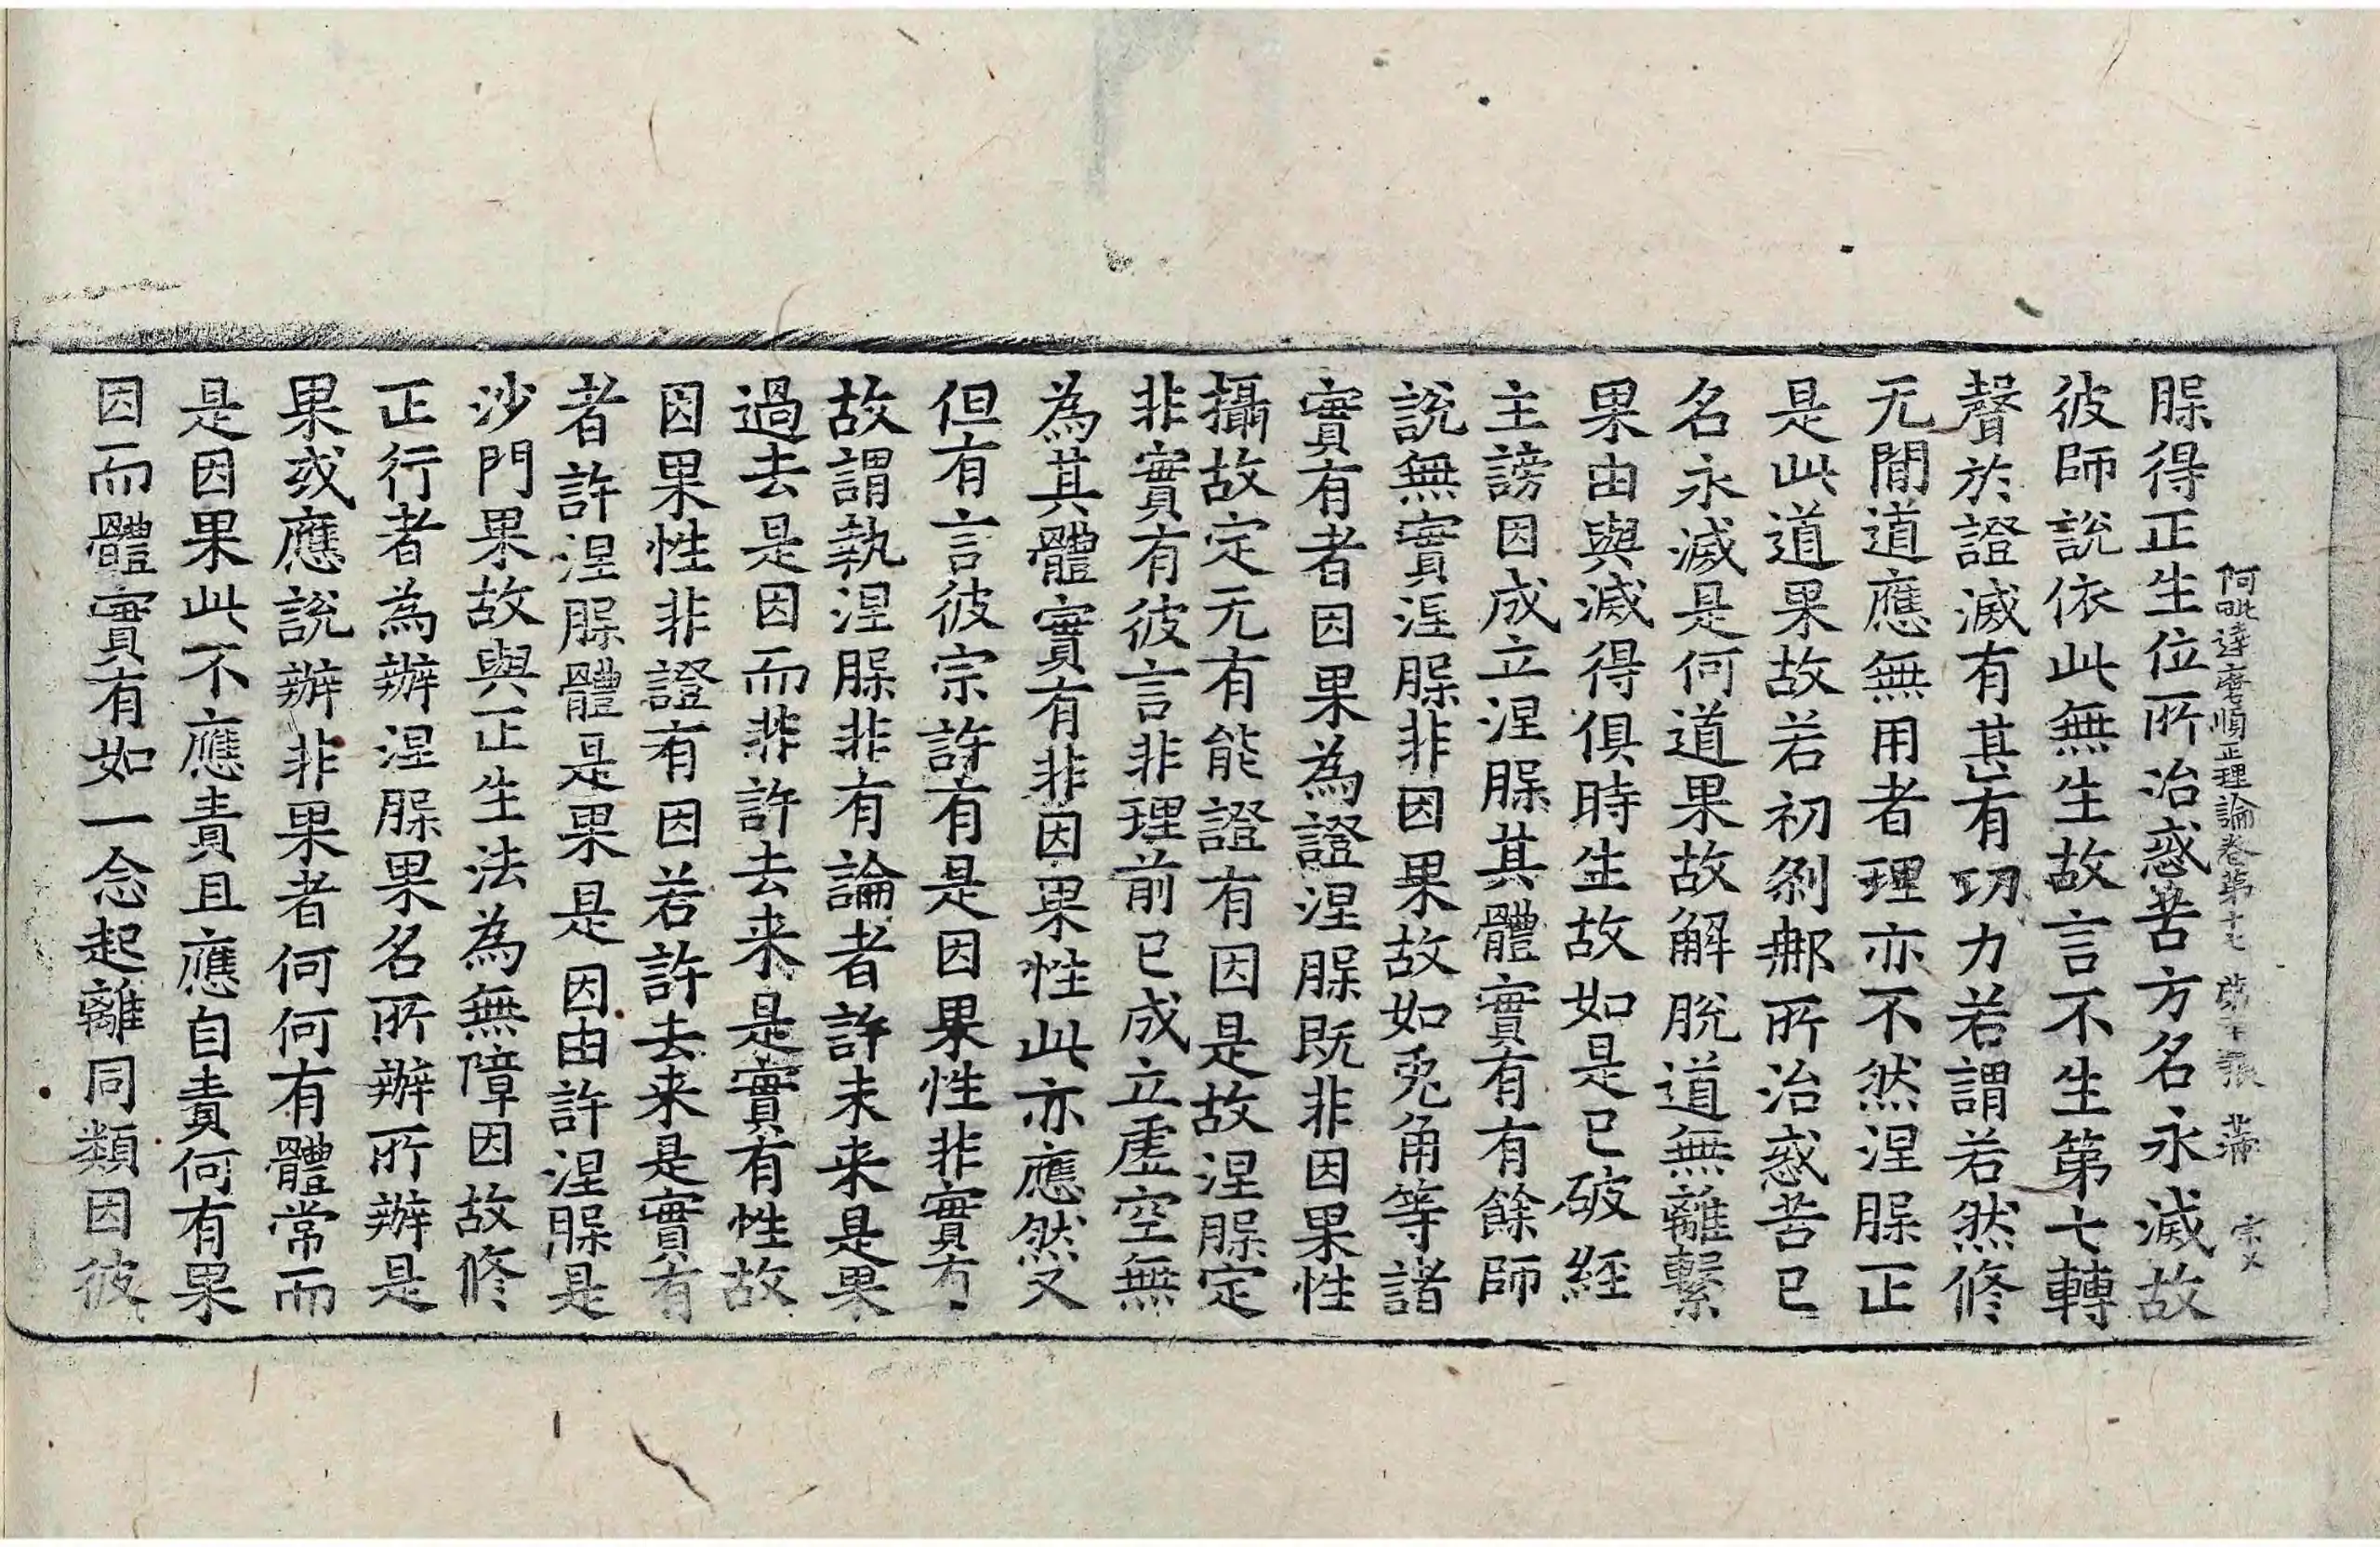 阿毗達磨順正理論卷第十七 第十張 宗文
脲得正生位所治惑苦方名永滅故
彼師說依此無生故言不生第七轉
聲於證滅有甚有功力若謂若然修
无間道應無用者理亦不然涅脲正
是此道果故若初剎那所治惑苦已
名永滅是何道果故解脫道無離繫
果由與滅得俱時生故如是已破經
主謗因成立涅脲其體實有有餘師
說無實涅脲非因果故如兎角等諸
實有者因果為證涅脲既非因果性
攝故定无有能證有因是故涅脲定
非實有彼言非理前已成立虛空無
為其體實有非因果性此亦應然又
但有言彼宗許有是因果性非實有
故謂執涅脲非有論者許未来是果
過去是因而非許去来是實有性故
因果性非證有因若許去来是實有
者許涅脲體是果是因由許涅脲是
沙門果故與正生法為無障因故修
正行者為辦涅脲果名所辦所辦是
果或應說辦非果者何何有體常而
是因果此不應責且應自責何有果
因而體實有如一念起離同類因彼